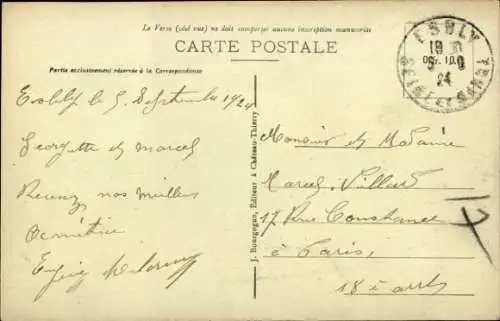 Le Verso (côté vue) ne doit comporter aucune inscription manuscrite
CARTE POSTALE
Partie exclusivement réservée à la Correspondance
ESBLY
18 30
5 - 9
24
SEINE ET MARNE
Esbly le 5 Septembre 1924
Georgette et Marcel
Recevez nos meilleurs
J. Bourgogne, Editeur à Château-Thierry
Monsieur et Madame
Marcel Villard
17 Rue Constance
à Paris,
18 è arrt